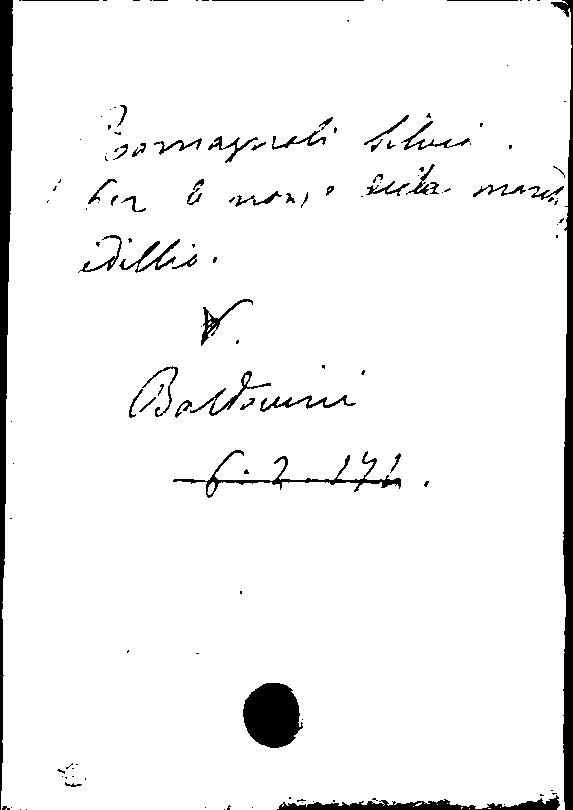 Romagnoli Silvio.
Per le nozze della march
idillio.
V.
Baldovini
6.2.171.